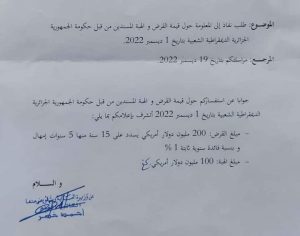 الموضوع: طلب نفاذ إلى المعلومة حول قيمة القرض و الهبة المسندين من قبل حكومة الجمهورية
الجزائرية الديمقراطية الشعبية بتاريخ 1 ديسمبر 2022.
المرجع: مراسلتكم بتاريخ 19 ديسمبر 2022.
جوابا عن استفساركم حول قيمة القرض و الهبة المسندين من قبل حكومة الجمهورية الجزائرية
الديمقراطية الشعبية بتاريخ 1 ديسمبر 2022 أتشرف بإعلامكم بما يلي:
- مبلغ القرض: 200 مليون دولار أمريكي يسدد على 15 سنة منها 5 سنوات إمهال
و بنسبة فائدة سنوية ثابتة 1 %
- مبلغ الهبة: 100 مليون دولار أمريكي
و الســلام